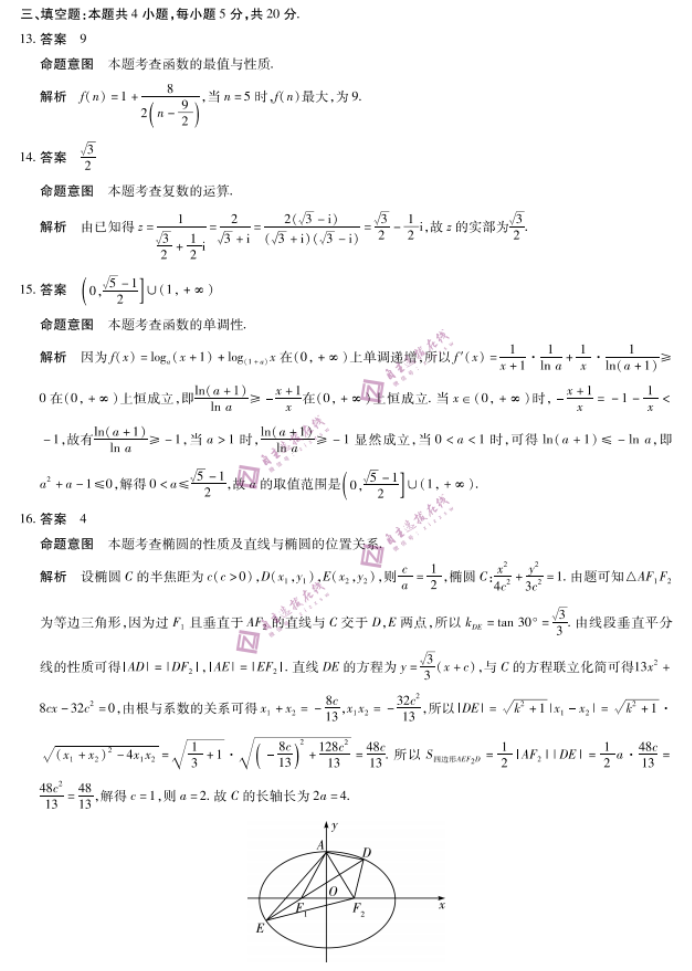 三、填空题:本题共 4 小题,每小题 5 分,共 20 分.
13. 答案 9
命题意图 本题考查函数的最值与性质.
解析 f(n) = 1 + 8/(2(n - 9/2)),当 n = 5 时,f(n)最大,为 9.
14. 答案 √3/2
命题意图 本题考查复数的运算.
解析 由已知得 z = 1/(√3/2 + 1/2 i) = 2/(√3 + i) = 2(√3 - i)/((√3 + i)(√3 - i)) = √3/2 - 1/2 i,故 z 的实部为 √3/2.
15. 答案 (0, (√5 - 1)/2]∪(1, + ∞)
命题意图 本题考查函数的单调性.
解析 因为 f(x) = logₐ(x + 1) + log₍₁₊ₐ₎x 在(0, + ∞)上单调递增,所以 f′(x) = 1/(x + 1) · 1/ln a + 1/x · 1/ln(a + 1) ≥
0 在(0, + ∞)上恒成立,即 ln(a + 1)/ln a ≥ - (x + 1)/x 在(0, + ∞)上恒成立. 当 x ∈ (0, + ∞)时, - (x + 1)/x = - 1 - 1/x <
- 1,故有 ln(a + 1)/ln a ≥ - 1,当 a > 1 时, ln(a + 1)/ln a ≥ - 1 显然成立,当 0 < a < 1 时,可得 ln(a + 1) ≤ - ln a,即
a² + a - 1 ≤ 0,解得 0 < a ≤ (√5 - 1)/2,故 a 的取值范围是 (0, (√5 - 1)/2]∪(1, + ∞).
16. 答案 4
命题意图 本题考查椭圆的性质及直线与椭圆的位置关系.
解析 设椭圆 C 的半焦距为 c(c > 0),D(x₁,y₁),E(x₂,y₂),则 c/a = 1/2,椭圆 C: x²/4c² + y²/3c² = 1. 由题可知△AF₁F₂
为等边三角形,因为过 F₁ 且垂直于 AF₂ 的直线与 C 交于 D,E 两点,所以 k_DE = tan 30° = √3/3. 由线段垂直平分
线的性质可得|AD| = |DF₂|,|AE| = |EF₂|. 直线 DE 的方程为 y = √3/3 (x + c),与 C 的方程联立化简可得13x² +
8cx - 32c² = 0,由根与系数的关系可得 x₁ + x₂ = - 8c/13, x₁x₂ = - 32c²/13,所以|DE| = √(k² + 1) |x₁ - x₂| = √(k² + 1) ·
√((x₁ + x₂)² - 4x₁x₂) = √(1/3 + 1) · √((- 8c/13)² + 128c²/13) = 48c/13. 所以 S四边形AEF₂D = 1/2 |AF₂||DE| = 1/2 a · 48c/13 =
48c²/13 = 48/13,解得 c = 1,则 a = 2. 故 C 的长轴长为 2a = 4.
y
A
D
O
F₁
F₂
x
E
自主选拔在线
自主选拔在线
自主选拔在线
自主选拔在线